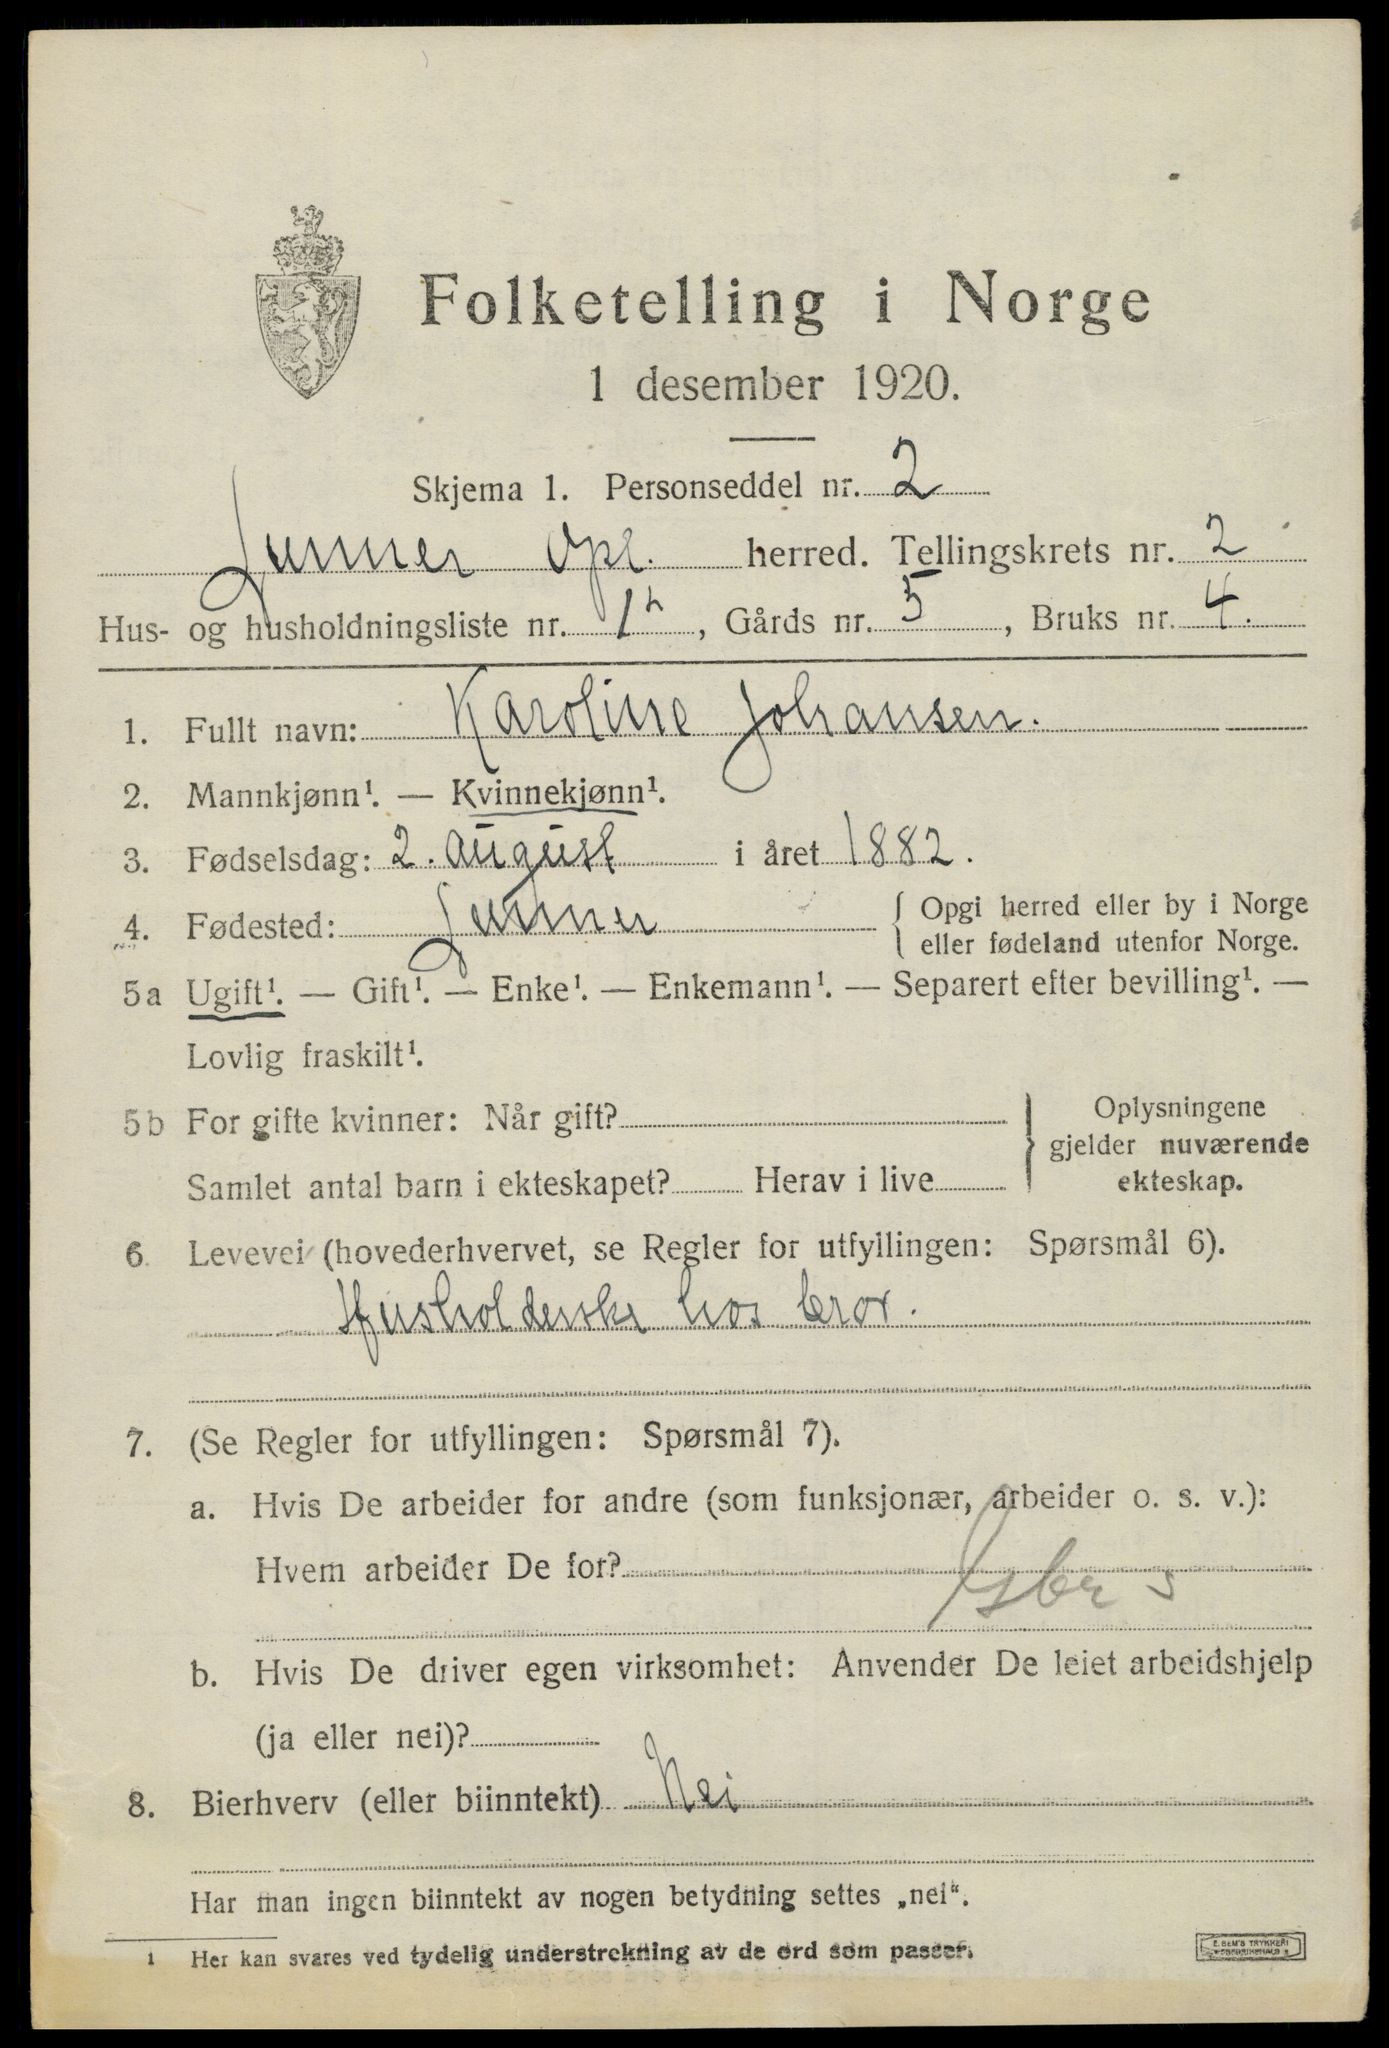 Folketelling i Norge
1 desember 1920.
Skjema 1. Personseddel nr. 2
Lunner Opl. herred. Tellingskrets nr. 2
Hus- og husholdningsliste nr. 12, Gårds nr. 5, Bruks nr. 4.
1. Fullt navn: Karoline Johansen.
2. Mannkjønn¹. — Kvinnekjønn¹.
3. Fødselsdag: 2. august i året 1882.
4. Fødested: Lunner { Opgi herred eller by i Norge
eller fødeland utenfor Norge.
5a Ugift¹. — Gift¹. — Enke¹. — Enkemann¹. — Separert efter bevilling¹. —
Lovlig fraskilt¹.
5b For gifte kvinner: Når gift? } Oplysningene
gjelder nuværende
Samlet antal barn i ekteskapet? Herav i live ekteskap.
6. Levevei (hovederhvervet, se Regler for utfyllingen: Spørsmål 6).
Husholderske hos bror.
7. (Se Regler for utfyllingen: Spørsmål 7).
a. Hvis De arbeider for andre (som funksjonær, arbeider o. s. v.):
Hvem arbeider De for?
b. Hvis De driver egen virksomhet: Anvender De leiet arbeidshjelp
(ja eller nei)?
8. Bierhverv (eller biinntekt) Nei
Har man ingen biinntekt av nogen betydning settes „nei“.
1 Her kan svares ved tydelig understrekning av de ord som passer.
E. SEM'S TRYKKERI
FREDRIKSHALD